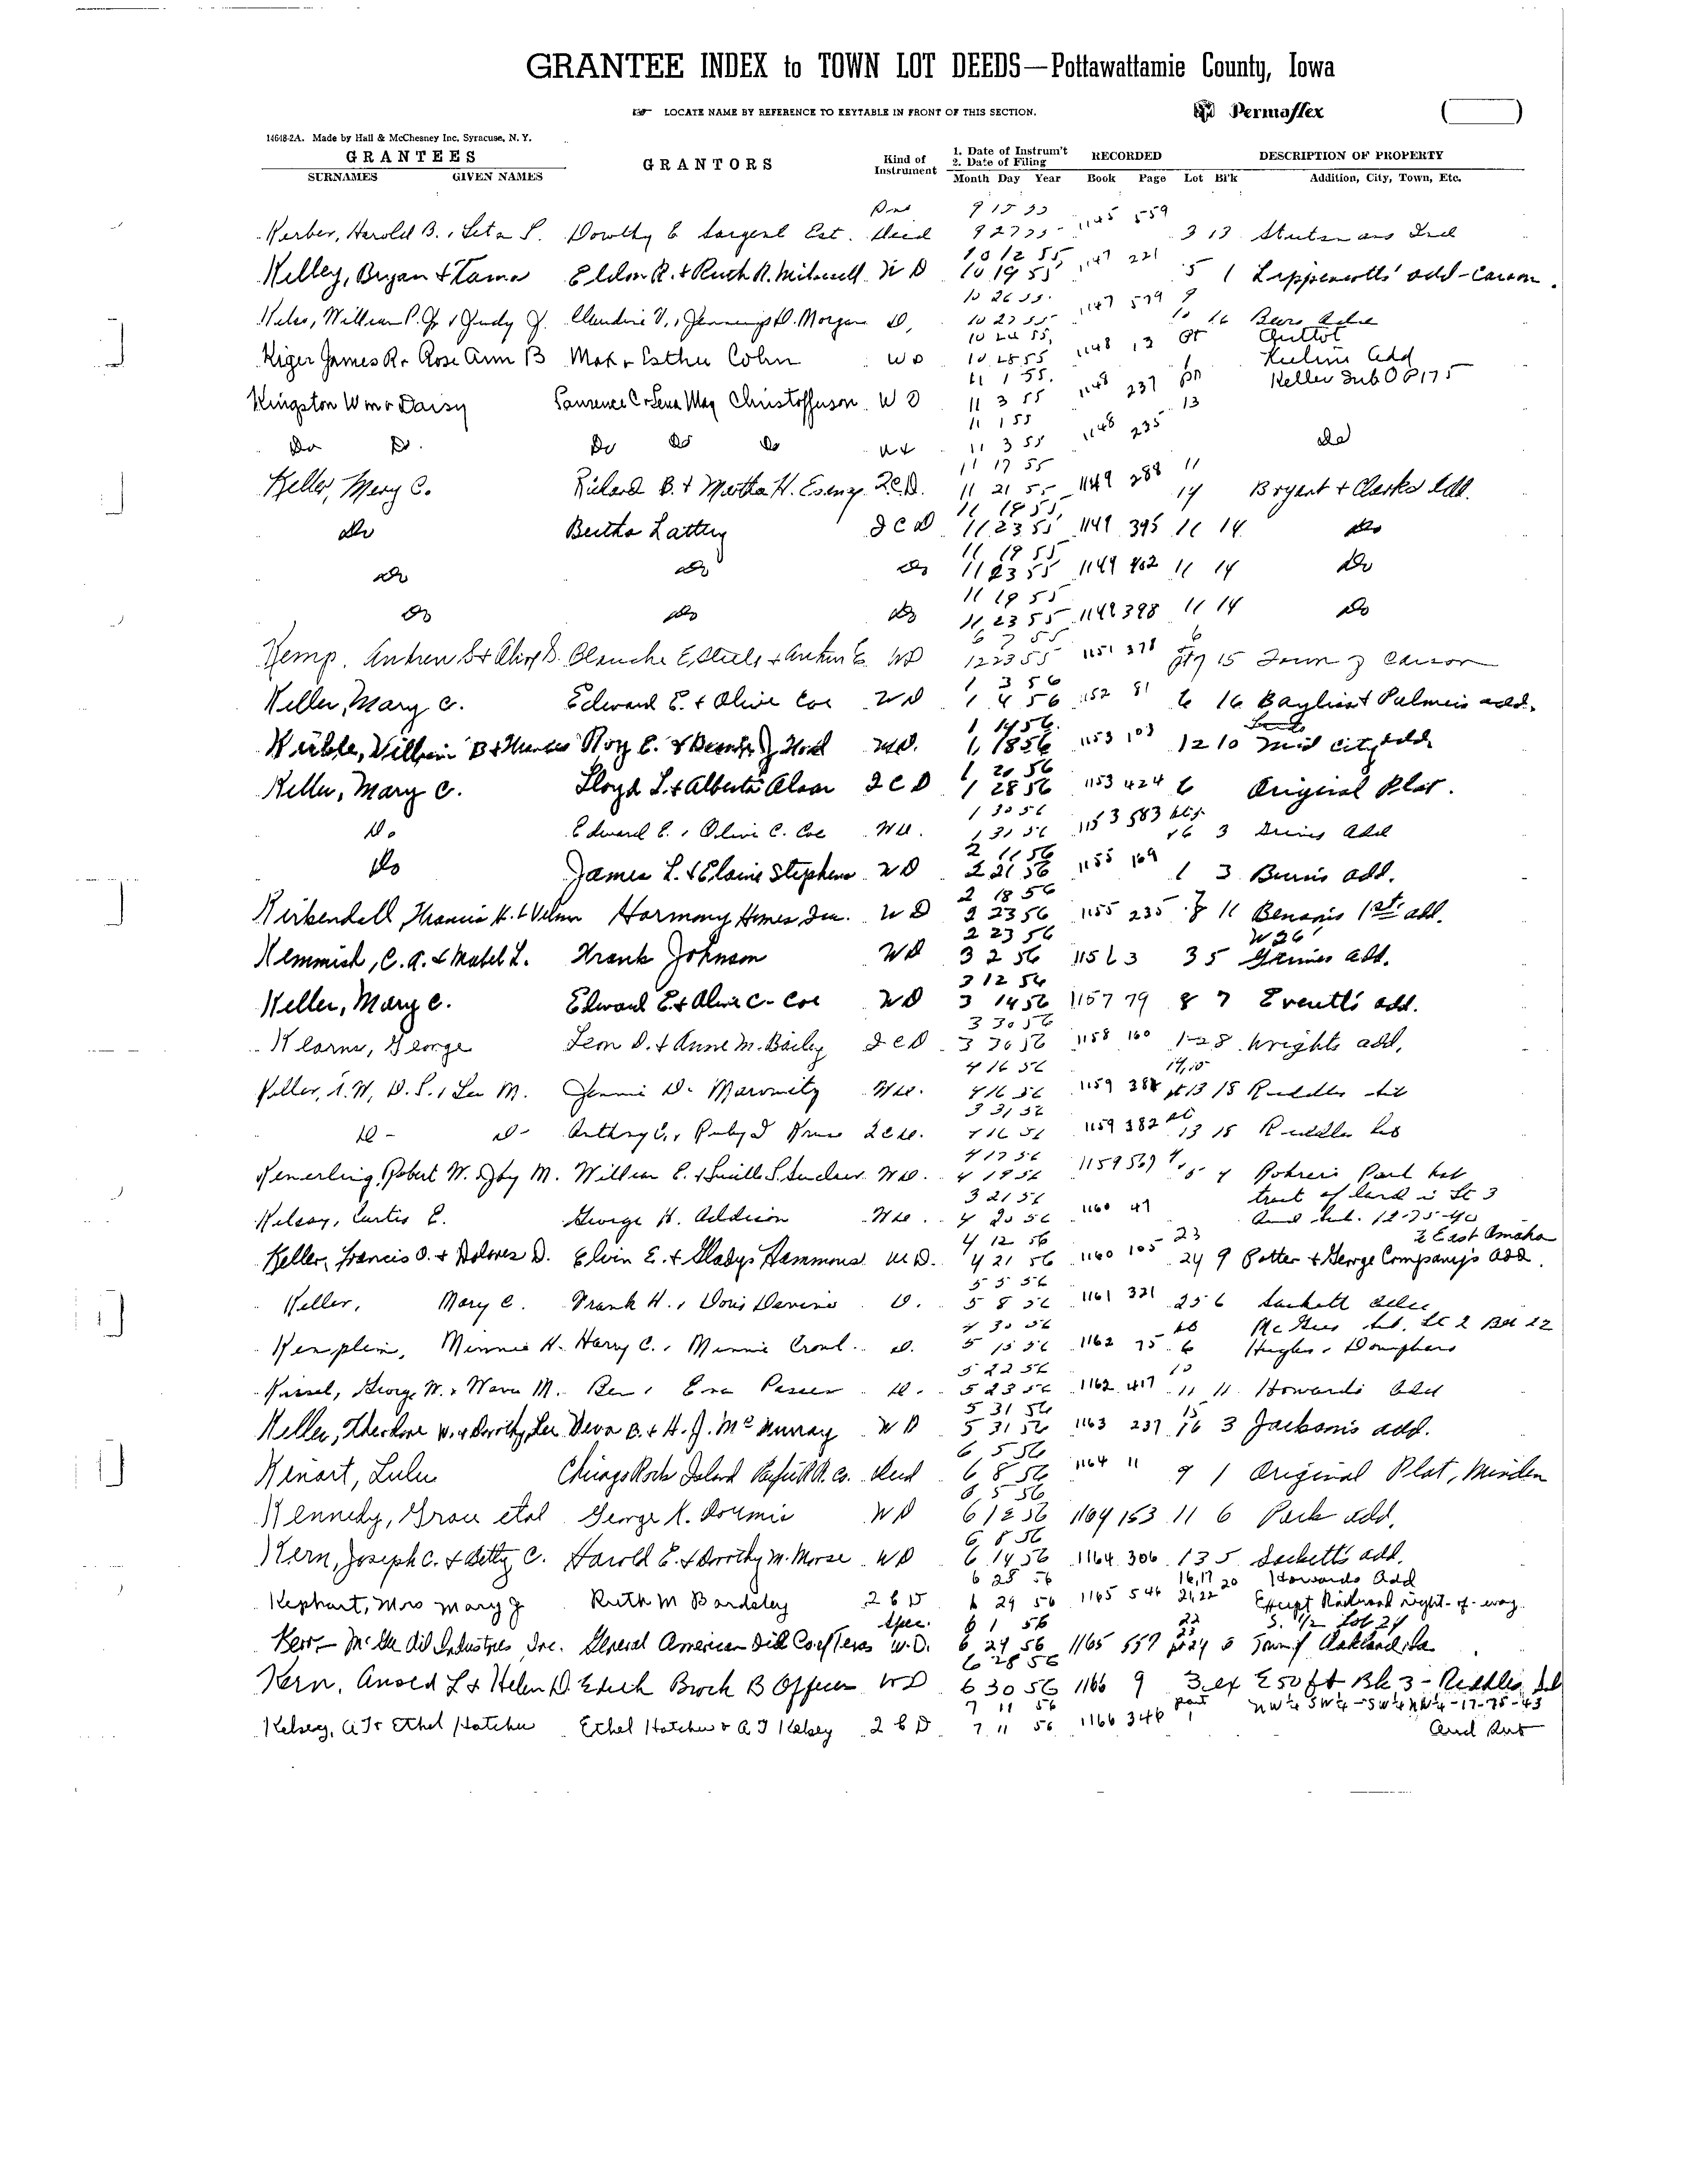 GRANTEE INDEX to TOWN LOT DEEDS—Pottawattamie County, Iowa
LOCATE NAME BY REFERENCE TO KEYTABLE IN FRONT OF THIS SECTION.
Permaflex
14648-2A. Made by Hall & McChesney Inc. Syracuse, N. Y.
GRANTEES GRANTORS Kind of Instrument 1. Date of Instrum't 2. Date of Filing RECORDED DESCRIPTION OF PROPERTY
SURNAMES GIVEN NAMES Month Day Year Book Page Lot Bl'k Addition, City, Town, Etc.
9 15 55
Kerber, Harold B. Dorothy E Sargent Est. Deed 9 27 55 1145 559 3 13
10 12 55
Kelley, Bryan + Eldon R. + Ruth R. W D 10 19 55 1147 221 5 1 add - Carson.
10 26 55
William P. Jr Judy J. D. Morgan D. 10 27 55 1147 579 9 10 16 Beers Add
10 24 55
Kiger James R + Rose Ann B Max + Esther Cohn W D 10 28 55 1148 13 Pt 1 Add
11 1 55
Kingston Wm + Daisy Laurence C + Lena May Christoffersen W D 11 3 55 1148 237 pn 13 Keller Sub O P 175
11 1 55
Do Do. Do Do Do 11 3 55 1148 235 Do
11 17 55
Keller, Mary C. Richard B. + Martha H. Q.C.D. 11 21 55 1149 288 11 14 Bryant + Clarks Add.
11 19 55
Do Bertha Lattery Q C D 11 23 55 1149 395 11 14 Do
11 19 55
Do Do Do 11 23 55 1149 402 11 14 Do
11 19 55
Do Do Do 11 23 55 1149 398 11 14 Do
6 7 55
Kemp, Andrew Blanche E Steele + W D 12 23 55 1151 378 6 pt 7 15 Town of Carson
1 3 56
Keller, Mary C. Edward E. + Olive Coe W D 1 4 56 1152 81 6 16 Bayliss + Palmers add.
1 14 56
William B + Frances Roy E. + W.D. 1 18 56 1153 103 12 10 Mid City add.
1 20 56
Keller, Mary C. Lloyd L. + Alberta Q C D 1 28 56 1153 424 6 Original Plat.
1 30 56
Do Edward E. + Olive C. Coe W D. 1 31 56 1153 583 3 Grimes Add
2 11 56
Do James L. + Elaine Stephens W D 2 21 56 1155 169 1 3 Burns add.
2 18 56
Kirkendall, Francis K. + Velma Harmony Homes Inc. W D 2 23 56 1155 235 8 11 Benson's 1st add.
2 23 56 W 26'
Kemmish, C. A. + Mabel L. Frank Johnson W D 3 2 56 1156 3 3 5 Grimes Add.
3 12 56
Keller, Mary C. Edward E + Olive C. Coe W D 3 14 56 1157 79 8 7 Everett's add.
3 30 56
Kearns, George Leon D. + Anne M. Bailey Q C D 3 30 56 1158 160 1-28 Wrights add.
4 16 56 14, 15
Keller, T. W., D. S. + Lee M. Jennie D. Marowitz W D. 4 16 56 1159 384 pt 13 18 Riddles Sub
3 31 56
Do - Do - Anthony C. + Ruby I Kruse Q C D. 4 16 56 1159 382 pt 13 18 Riddles Sub
4 17 56
Kemerling, Robert W. + Joy M. William E. + Lucille S. Sinclair W D. 4 19 56 1159 569 4 5 4 Rohrers Park Sub
3 21 56 tract of land in Lt 3
Kelsay, Curtis E. George H. Addison W D. 4 20 56 1160 47 Aud Sub. 12-75-40
4 12 56 23 East Omaha
Keller, Francis O. + Dolores D. Elvin E. + Gladys Hammons W D. 4 21 56 1160 105 24 9 Potter + George Company's add.
5 5 56
Keller, Mary C. Frank H. + Doris D. 5 8 56 1161 321 25 6 Sackett Add
4 30 56 McGees Sub. Lt 2 Blk 22
Minnie H. Harry C. + Minnie D. 5 15 56 1162 75 6 Hughes + Doniphans
5 22 56 10
Kissel, George W. + M. Ben + Eva D. 5 23 56 1162 417 11 11 Howards Add
5 31 56 15
Keller, Theodore W. + Dorothy Lee Neva B. + H. J. McMurray W D 5 31 56 1163 237 16 3 Jackson's add.
6 5 56
Kenart, Lulu Chicago Rock Island Pacific R.R. Co. Deed 6 8 56 1164 11 9 1 Original Plat, Minden
6 5 56
Kennedy, Grace etal George K. W D 6 12 56 1164 153 11 6 Park add.
6 8 56
Kern, Joseph C. + Betty C. Harold E. + Dorothy M. Morse W D 6 14 56 1164 306 13 5 Sackett's add.
6 28 56 16, 17 20 Howards Add
Kephart, Mrs Mary J Ruth M Bardsley Q C D 6 29 56 1165 546 21, 22 Except Railroad right-of-way
Spec. 6 1 56 22 23 S. 1/2 Lot 24
Kerr - McGee Oil Industries, Inc. General American Oil Co of Texas W.D. 6 29 56 1165 557 pt 24 5 Town of Oakland, Ia
6 28 56
Kern, Arnold L + Helen D Edith Brock B Officer W D 6 30 56 1166 9 3 ex E 50 ft Blk 3 - Riddles Sub
7 11 56 part NW¼ SW¼ - SW¼ NW¼ - 17-75-43
Kelsey, A J + Ethel Hatcher Ethel Hatcher + A J Kelsey Q C D 7 11 56 1166 346 1 Aud Sub